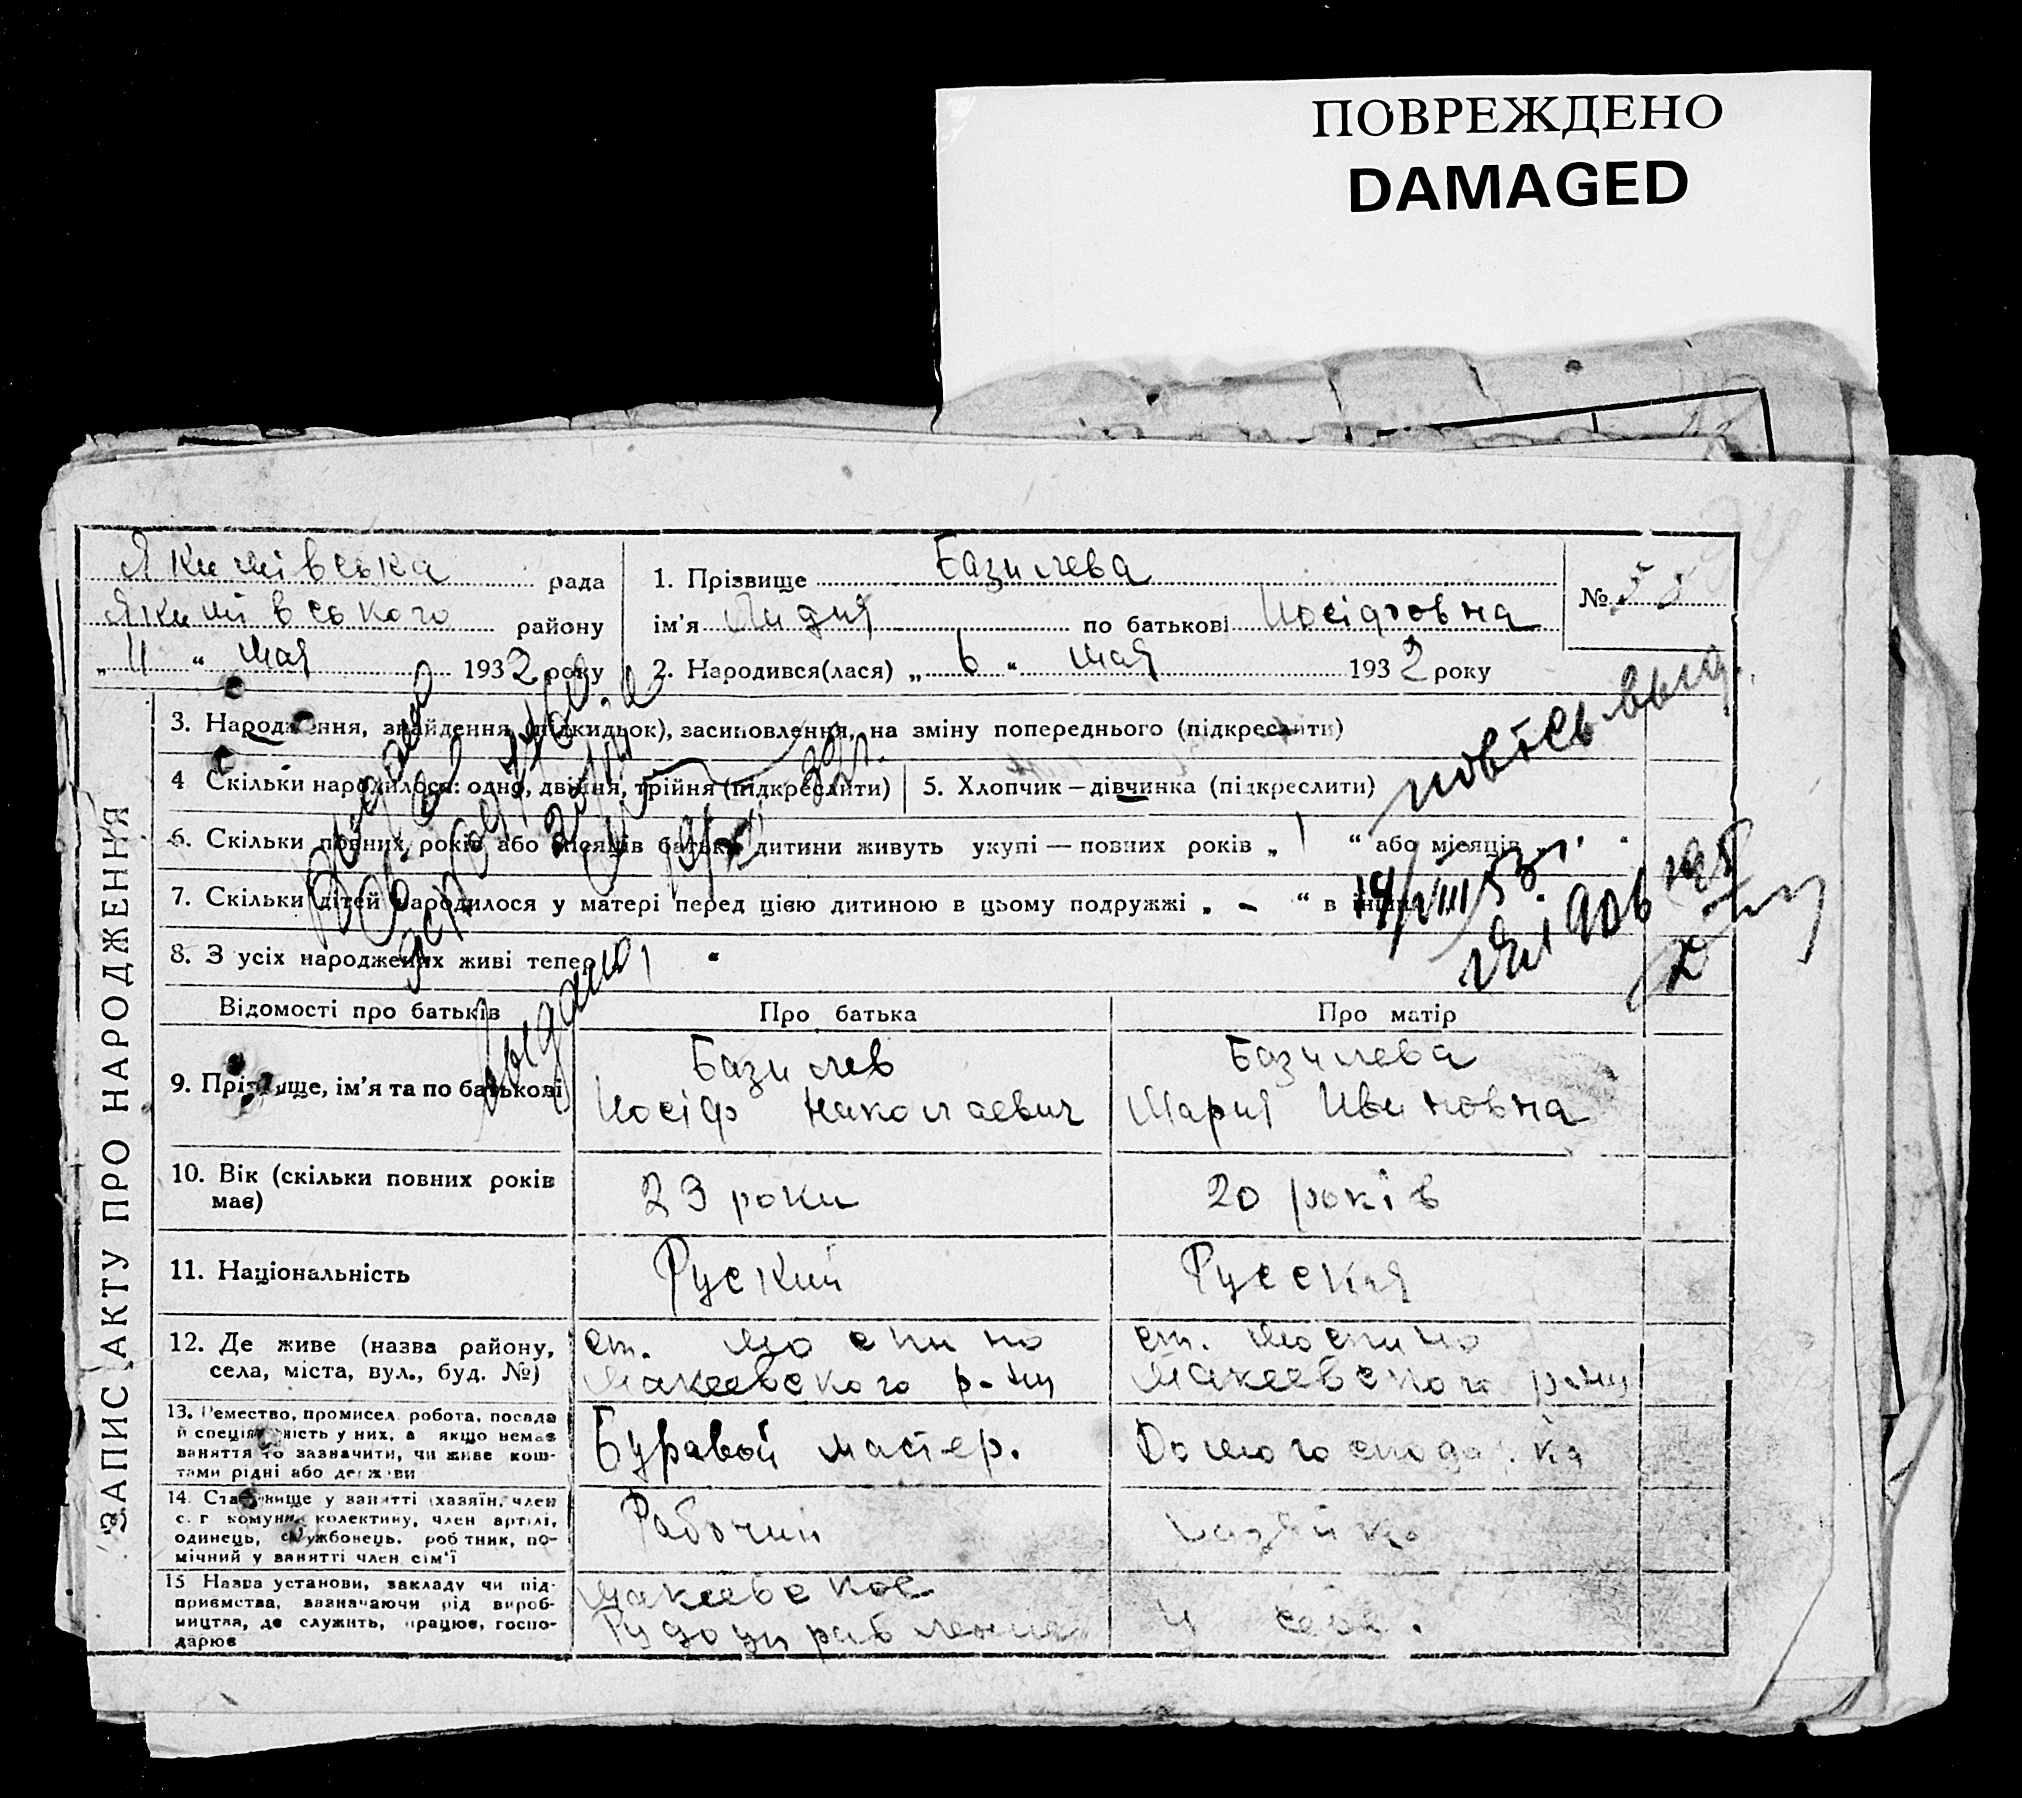 ПОВРЕЖДЕНО
DAMAGED
Якимівська рада
Якимівського району
„ 11 “ мая 1932 року
1. Прізвище Базилева
ім'я Лидия по батькові Иосіфовна
№
2. Народився(лася) „ 6 “ мая 1932 року
3. Народження, знайдення (підкидьок), засиновлення, на зміну попереднього (підкреслити)
4 Скільки народилося: одно, двійня, трійня (підкреслити)
5. Хлопчик – дівчинка (підкреслити)
6. Скільки повних років або місяців батьки дитини живуть укупі — повних років „ 1 “ або місяців „
7. Скільки дітей народилося у матері перед цією дитиною в цьому подружжі „ - “ в інших
8. З усіх народжених живі тепер 1 “
повтсь выд.
14/VIII 53г.
выдано
ЗАПИС АКТУ ПРО НАРОДЖЕННЯ
Відомості про батьків Про батька Про матір
9. Прізвище, ім'я та по батькові
Базилев
Иосіф Николаевич
Базилева
Мария Ивановна
10. Вік (скільки повних років має)
23 роки
20 років
11. Національність
Руский
Русская
12. Де живе (назва району,
села, міста, вул., буд. №)
ст. Моспино
Макеевского р-ну
ст. Моспино
Макеевского р-ну
13. Ремество, промисел, робота, посада
й спеціяльність у них, а якщо немає
заняття то зазначити, чи живе кош-
тами рідні або держави
Буравой мастер.
Домогосподарка
14. Становище у занятті (хазяїн, член
с. г комуни, колективу, член артілі,
одинець, службовець, робітник, по-
мічний у занятті член сім'ї
Рабочий
Хазяйка
15 Назва установи, закладу чи під-
приємства, зазначаючи рід вироб-
ництва, де служить, працює, госпо-
дарює
Макеевское
Рудоуправление
у себе.